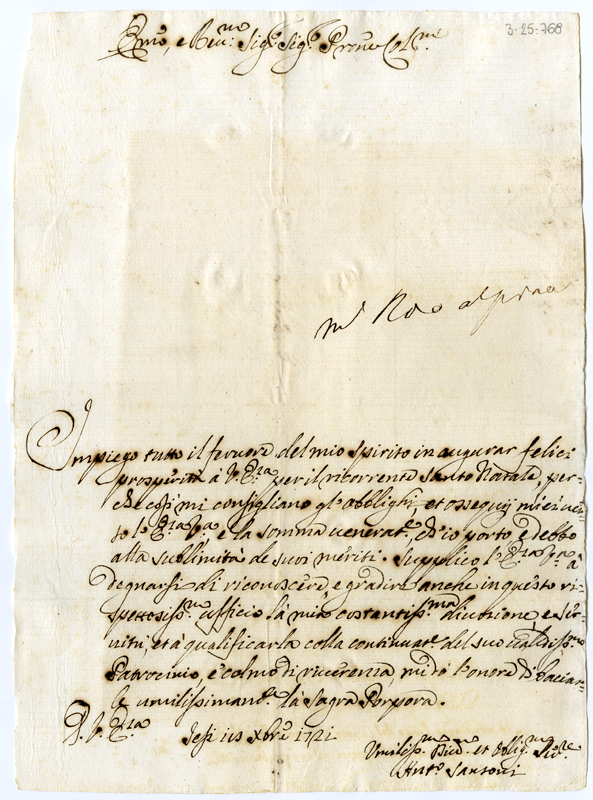 3-25-768
Emo, e Reu:mo Sig.r Sig.r Prone Col.mo
Impiego tutto il feruore del mio spirito in augurar felici
prosperità à V. E.za per il ricorrente santo Natale, per-
che così mi consigliano gl'obblighi, et ossequij miei uer-
so l'E.za S.a, e la somma uenerat.e, ch'io porto, e debbo
alla sublimità de suoi meriti. Supplico l'E.za S.a à
degnarsi di riconoscere, e gradire anche in questo ri-
spettosiss.mo ufficio la mia costantiss.ma diuozione, e ser-
uitù, et à qualificarla colla continuat.e del suo ualidiss.mo
Patrocinio, e colmo di riuerenza mi dò l'onore di baciar-
le umilissimam.te la Sagra Porpora.
D. V. E.za
Jesi Xbre 1721
Umiliss.mo Diu.mo et Obblig.mo Ser.re
Ant.o Sansoni